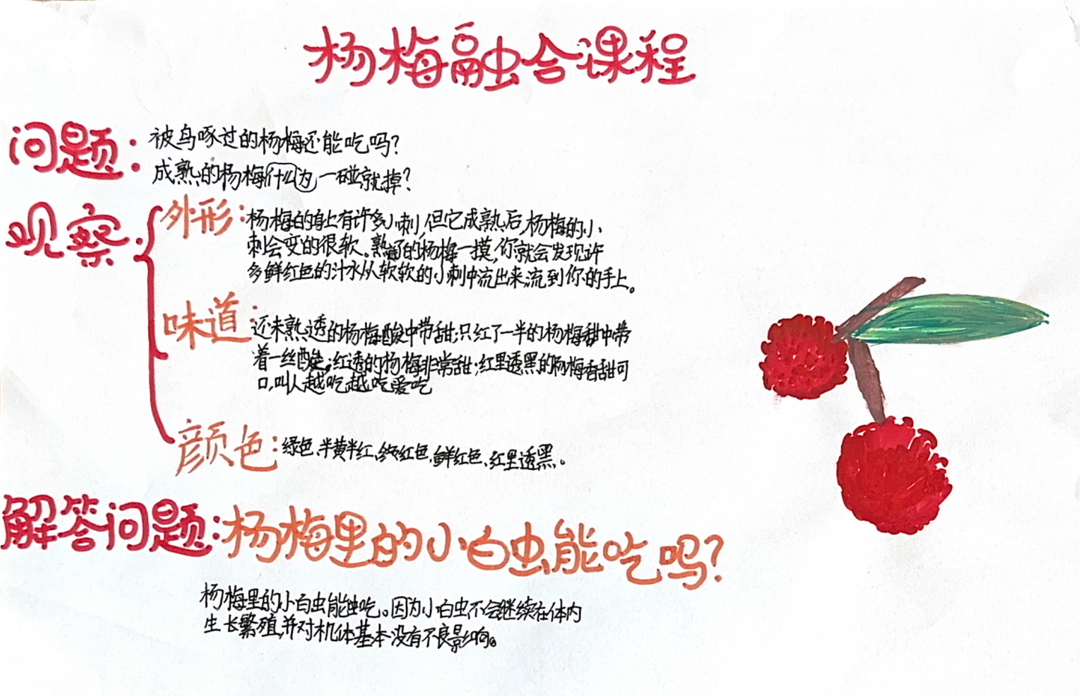 杨梅融合课程
问题:被鸟啄过的杨梅还能吃吗?
成熟的杨梅什么为一碰就掉?
观察:
外形:杨梅的身上有许多小刺,但它成熟后,杨梅的小
刺会变的很软。熟了的杨梅一摸,你就会发现许
多鲜红色的汁水从软软的小刺中流出来,流到你的手上。
味道:还未熟透的杨梅酸中带甜;只红了一半的杨梅甜中带
着一丝酸;红透的杨梅非常甜;红里透黑的杨梅香甜可
口,叫人越吃越吃爱吃
颜色:绿色、半黄半红、红色、鲜红色、红里透黑。
解答问题:杨梅里的小白虫能吃吗?
杨梅里的小白虫能吃。因为小白虫不会继续在体内
生长繁殖,并对机体基本没有不良影响。